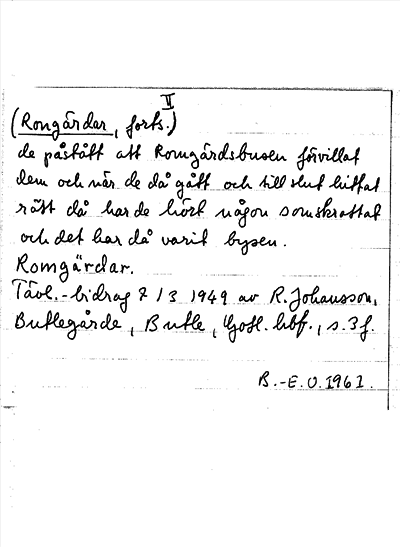 VI
(Romgärdar, forts.)
de påstått att Romgärdsbusen förvillat
dem och när de då gått och till slut hittat
rätt då har de hört någon som skrattat
och det har då varit bysen.
Romgärdar.
Tävl.-bidrag 7/3 1949 av R. Johansson,
Buttlegårde, Buttle, Gotl. hbf., s. 3 f.
B.-E. O. 1961.